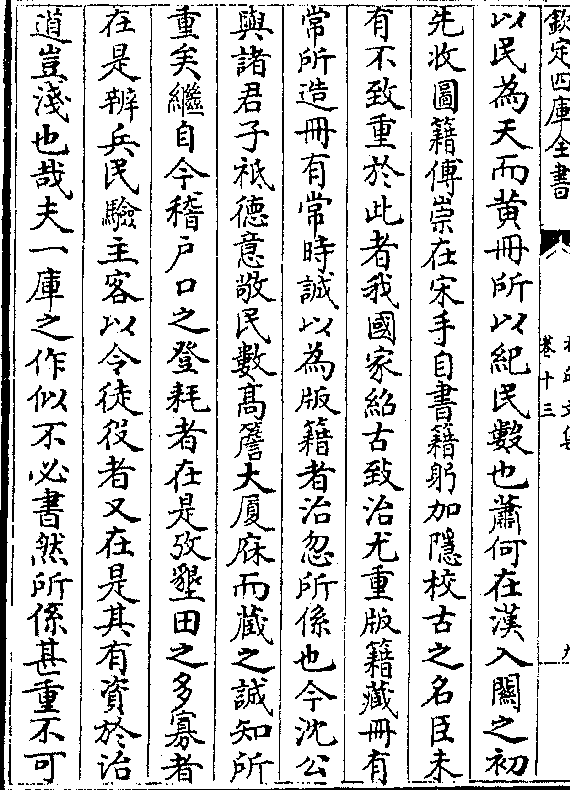 欽定四庫全書
卷十三
以民為天而黄冊所以紀民數也蕭何在漢入關之初
先收圖籍傅崇在宋手自書籍躬加隱校古之名臣未
有不致重於此者我國家紹古致治尤重版籍藏冊有
常所造冊有常時誠以為版籍者治忽所係也今沈公
與諸君子祗德意敬民數髙簷大厦庥而藏之誠知所
重矣繼自今稽户口之登耗者在是攷墾田之多寡者
在是辨兵民驗主客以令徒役者又在是其有資於治
道豈淺也哉夫一庫之作似不必書然所係甚重不可